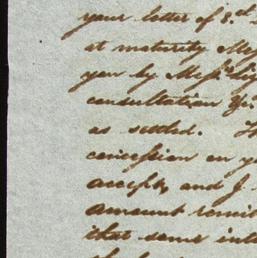 your letter of 8.d
at maturity Mess
you by Mess.rs
consultation &c.
as settled. Th
concession on y
accepts, and I
amount remit
that some inte